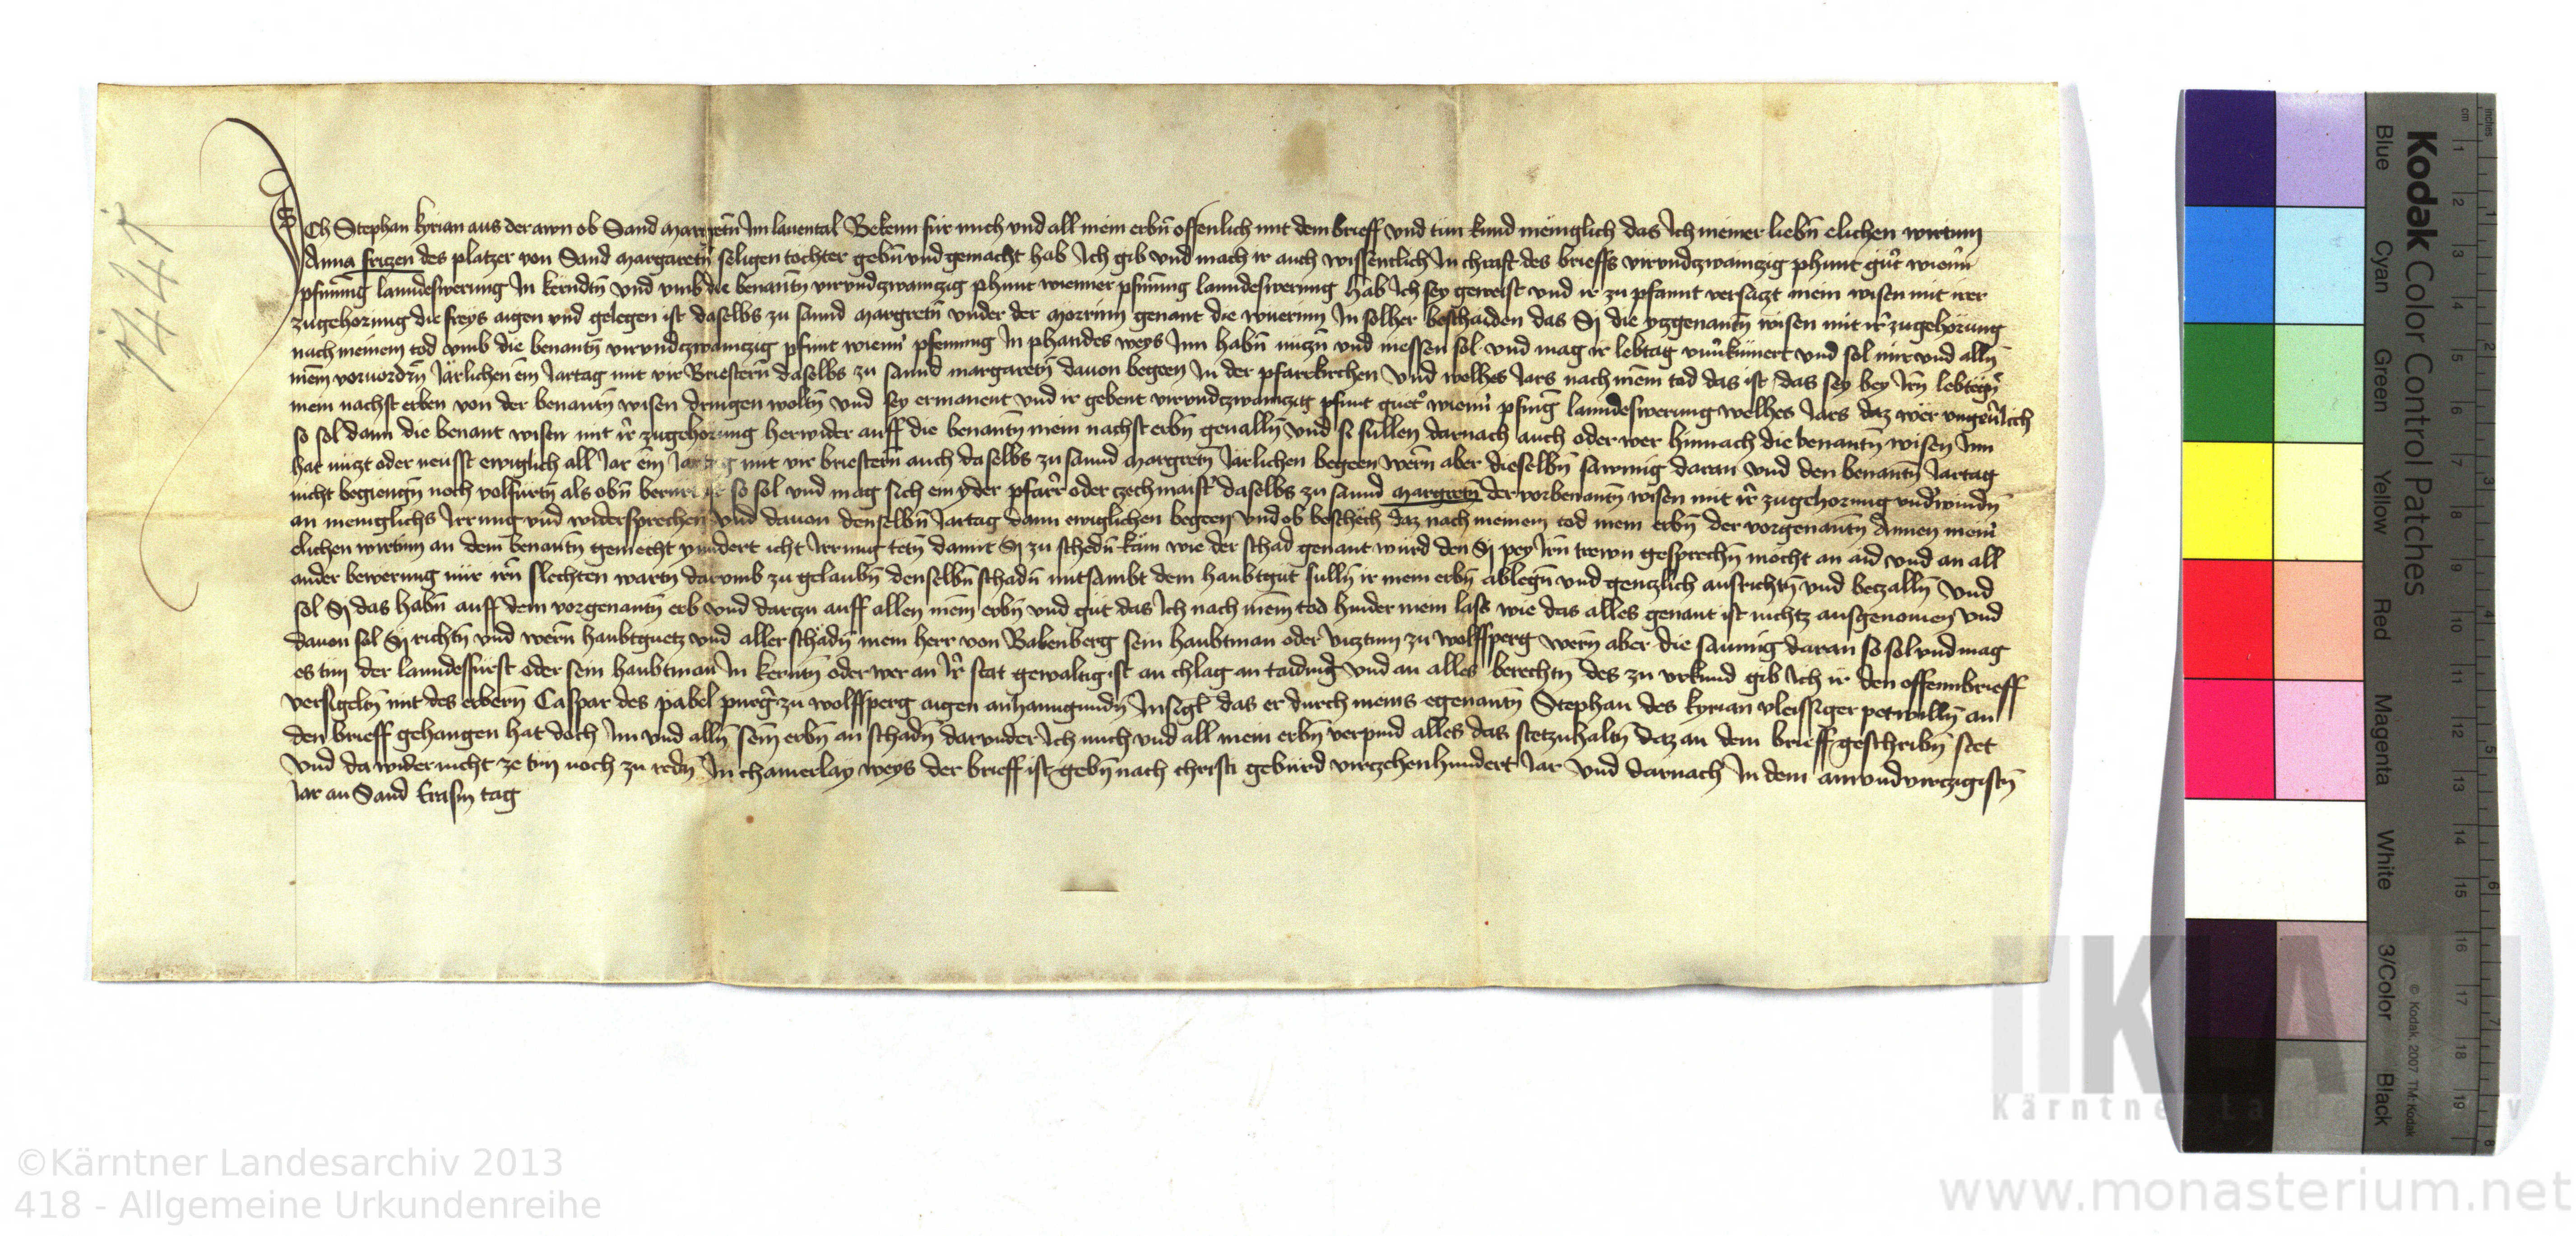 1441
Ich Stephan kyrian aus der awn ob Sand margretn̄ Im lauental Bekenn für mich vnd all mein erbn̄ offenlich mit dem brieff vnd tün kund meniglich das Ich meiner liebn̄ elichen wirtinn
Anna friczen des platzer von Sand margaretn̄ seligen tochter gebn̄ vnd gemacht hab Ich gib vnd mach ir auch wissentlich In chrafft des brieffs virvndzwainzig phunt gůt wienn̄
pfennīg lanndeswerung In kerndtn̄ vnd vmb die benantn̄ virvndzwainzig phunt wienner pfennīg lanndeswerung hab Ich sey geweist vnd ir zu pfannt versäczt mein wisen mit irer
zugehorung die freys aigen vnd gelegen ist daselbs zu sannd margretn̄ vnder der genant die In solher beschaiden das Sy die yczgenantn̄ wisen mit ir̄ zugehörung
nach meinem tod vmb die benantn̄ virvndczwainczig pfunt wienn̄ pfenning In phandes weys Inn habn̄ nuczn̄ vnd niessen sol vnd mag ir lebtag vnu̇kümert vnd sol mir vnd alln̄
mēm voruordrn̄ Järlichen ēin Jartag mit vir Briestern̄ daselbs zu sannd margaretn̄ dauon begeen In der pfarrkirchen Vnd welhes Jars nach mēm tod das ist das sey bey Irn̄ lebtegn̄
mein nachst erben von der benantn̄ wisen dringen woltn̄ vnd sey ermanent vnd ir gebent virvndczwainczig pfunt guet̄ wienn̄ pfinḡ lanndeswerung welhes Jars daz wer vngeu̇lich
so sol dann die benant wisen mit ir̄ zugehorung herwider auff die benantn̄ mein nachst erbn̄ geualln̄ vnd si sullen darnach auch oder wer hinnach die benantn̄ wisen Inn
hat nüczt oder neusst ewiglich all Jar ēin Jartag mit vir briestern̄ auch daselbs zu sannd margretn̄ Järlichen begeen wern̄ aber dieselbn̄ sawmig daran vnd den benantn̄ Jartag
nicht begiengn̄ noch volfürtn̄ als obn̄ berürt ist so sol vnd mag sich ein yder pfarr̄ oder zechmaist̄ daselbs zu sannd margretn̄ der vorbenantn̄ wisen mit ir̄ zugehorung vnd̄windn̄
an meniglichs Irrung vnd widersprechen vnd dauon denselbn̄ Jartag dann ewiglichen begeen Vnd ob beschech daz nach meinem tod mein erbn̄ der vorgenantn̄ Annen mein̄
elichen wirtinn an dem benantn̄ gemecht yndert icht Irrung tetn̄ damit Sy zu schedn̄ käm wie der schad genant würd den Sy pey Irn̄ trewn gesprechn̄ mocht an aid vnd an all
ander bewerung nür irn̄ slechten wartn̄ darumb zu gelaubn̄ denselbn̄ schadn̄ mitsambt dem haubtgüt sulln̄ ir mein erbn̄ ablegn̄ vnd genczlich ausrichtn̄ vnd beczalln̄ Vnd
sol Sy das habn̄ auff dem vorgenantn̄ erb vnd darzu auff allen mēm erbn̄ vnd güt das Ich nach mēm tod hinder mein lass wie das alles genant ist nichtz ausgenomen Vnd
dauon sol Sy richtn̄ vnd wern̄ haubtguetz vnd aller schädn̄ mein herr von Babenberg sein haubtman oder vicztum zu wolffsperg wern̄ aber die saumig daran so sol vnd mag
es tün der lanndesfürst oder sein haubtman In kerntn̄ oder wer an Ir̄ stat gewaltig ist an chlag an taiding vnd an alles berechtn̄ des zu vrkund gib Ich ir den offennbrieff
versigeltn̄ mit des erbern̄ Caspar des päbel purḡ zu wolffsperg aigen anhanngundn̄ Insigl̄ das er durch meins egenantn̄ Stephan des kyrian vleissiger petwilln̄ an
den brieff gehangen hat doch Im vnd alln̄ sēin erbn̄ an schadn̄ darvnder Ich mich vnd all mein erbn̄ verpind alles das stet zu haltn̄ daz an dem brieff geschribn̄ stet
Vnd da wider nicht ze tün noch zu redn̄ In chainerlay weys der brieff ist gebn̄ nach christi gebürd virczehenhundert Jar vnd därnach In dem ainvndvirczigistn̄
Jar an Sand Erasm tag
Kodak Color Control Patches
Blue Cyan Green Yellow Red Magenta White 3/Color Black
© Kodak, 2007 TM: Kodak
inches
cm
1 2 3 4 5 6 7 8 9 10 11 12 13 14 15 16 17 18 19
1 2 3 4 5 6 7 8
KLA
Kärntner Landesarchiv
©Kärntner Landesarchiv 2013
418 - Allgemeine Urkundenreihe
www.monasterium.net